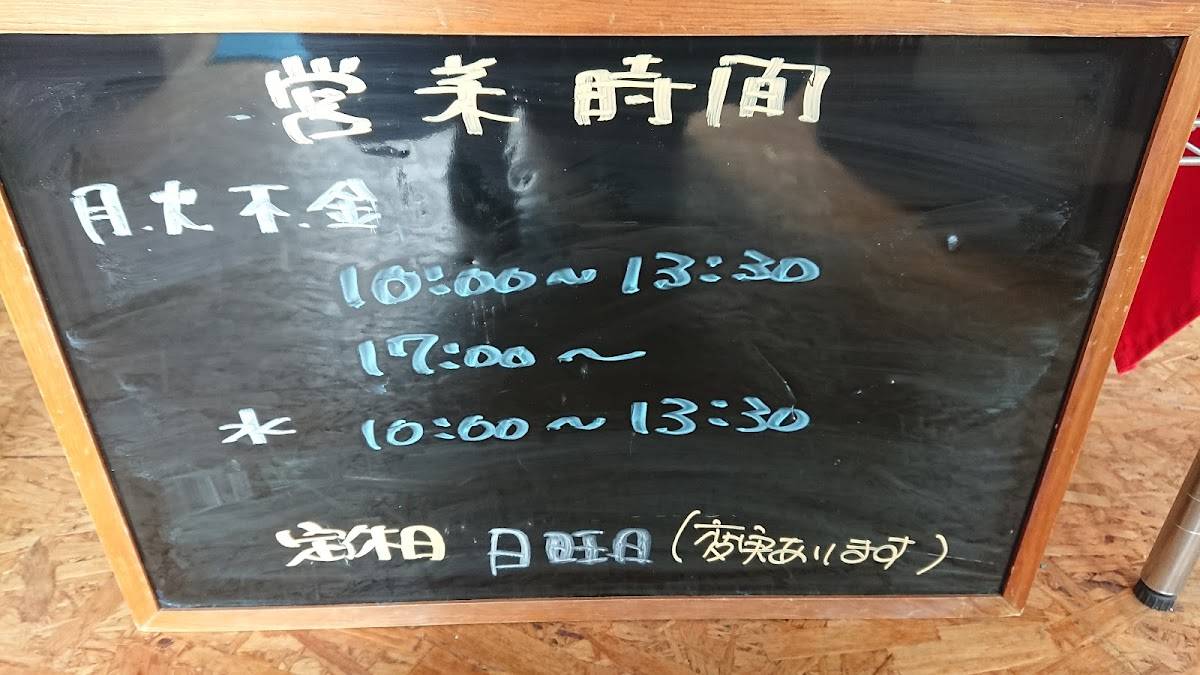 営業時間
月.火 木.金
10:00～13:30
17:00～
水 10:00～13:30
定休日 日曜日 (変更あります)